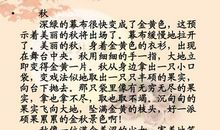 • 秋
深绿的幕布很快变成了金黄色，这预
示着美丽的秋将出场了。幕布缓慢地拉开
了。美丽的秋，身着金黄色的衣衫，出现
在舞台中央。秋用细细的手一指，大地立
即变得金黄一片。秋从身边拿出一只小口
袋，变戏法似地取出一只只丰硕的果实，
向台下抛去。那只袋里像有无穷无尽的果
实，拿也拿不尽，取也取不竭。沉甸甸的
果实飞向大地，坠满金黄的枝头，好一派
硕果累累的金秋景色啊！